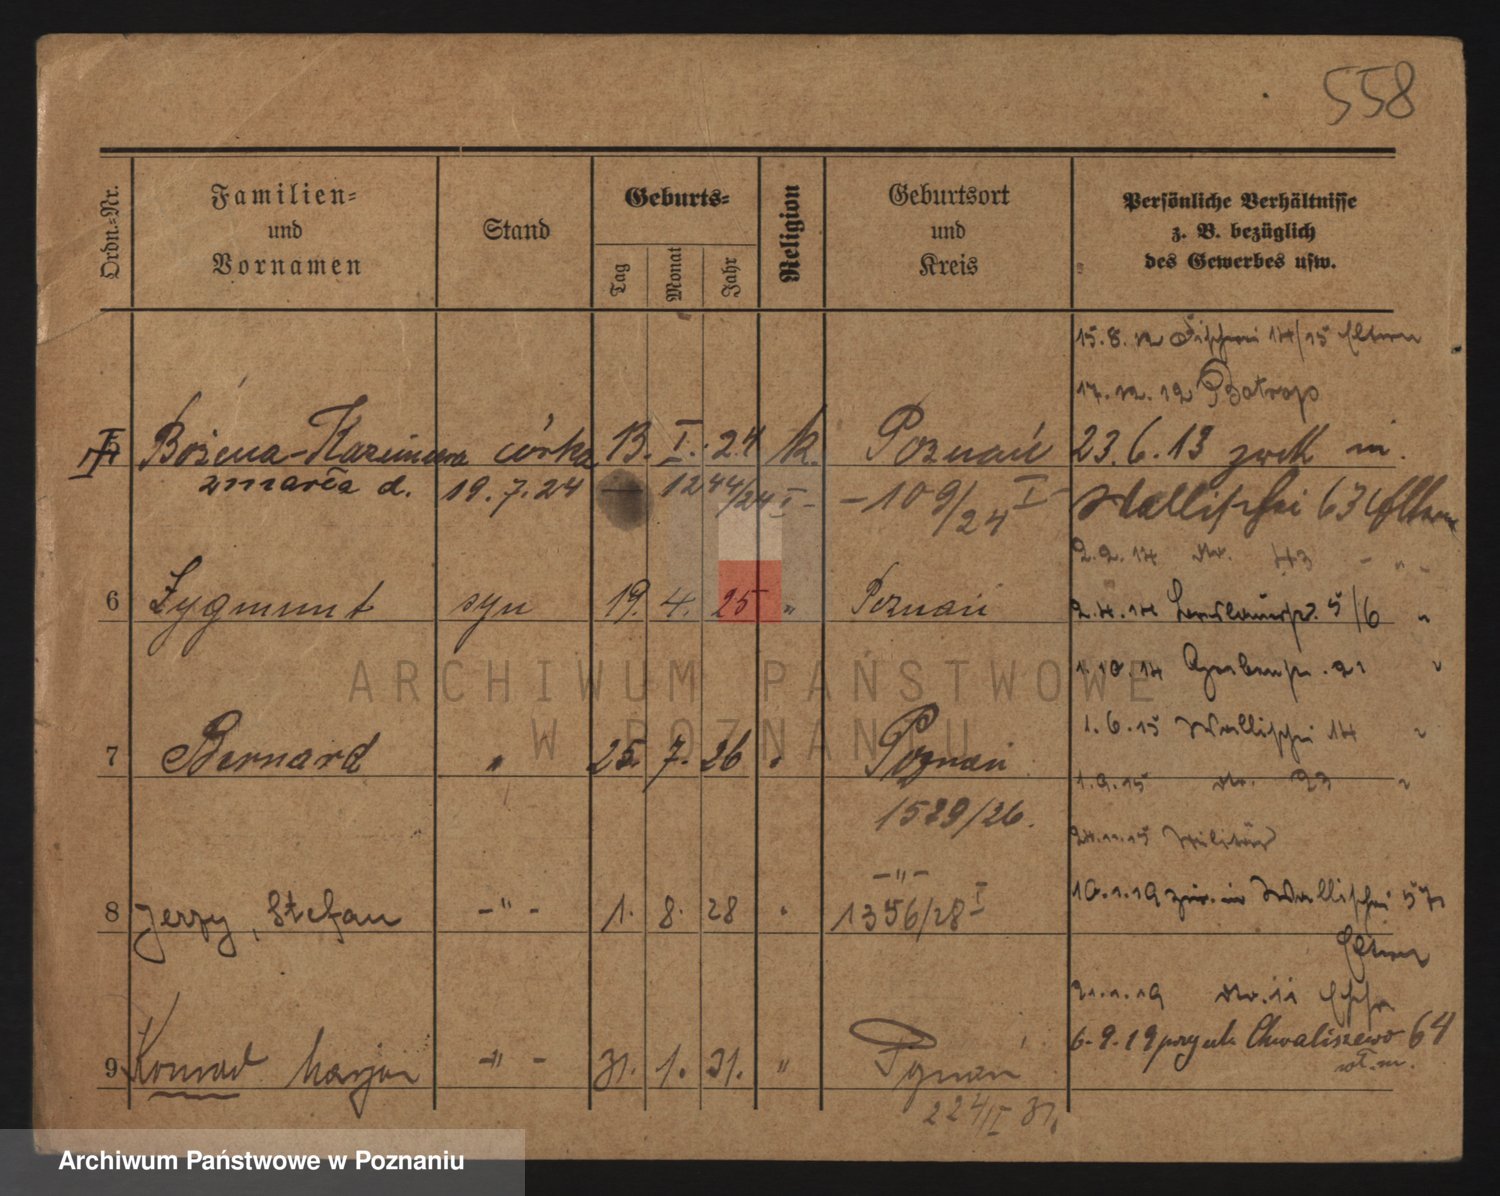 558
Ordn.-Nr.
Familien-
und
Vornamen
Stand
Geburts-
Tag
Monat
Jahr
Religion
Geburtsort
und
Kreis
Persönliche Verhältnisse
z. B. bezüglich
des Gewerbes usw.
15.8.12 14/15 Eltern
17.12.12 Botrop
Bożena-Kazimiera córka 13. I. 24 k. Poznań 23.6.13 zurk in
zmarła d. 19.7.24 — 1244/24 I - — 109/24 I - Wallischei 63 Eltern
2.2.14 43 - "
6 Zygmunt syn 19. 4. 25 " Poznań 2.4.14 5/6 "
1.10.14 Grabenstr. 21 "
1.6.15 Wallischei 14 "
7 Bernard " 25. 7. 26 " Poznań 1.9.15 23 "
1529/26.
24.11.15 Militär
-"-
8 Jerzy, Stefan -"- 1. 8. 28 " 1356/28 I 10.1.19 zur. in Wallischei 57
Eltern
21.1.19 11
9 Konrad Marjan -"- 31. 1. 31. " Poznań 6.9.19 Chwaliszewo 64
224/I 31.
ARCHIWUM PAŃSTWOWE
W POZNANIU
Archiwum Państwowe w Poznaniu